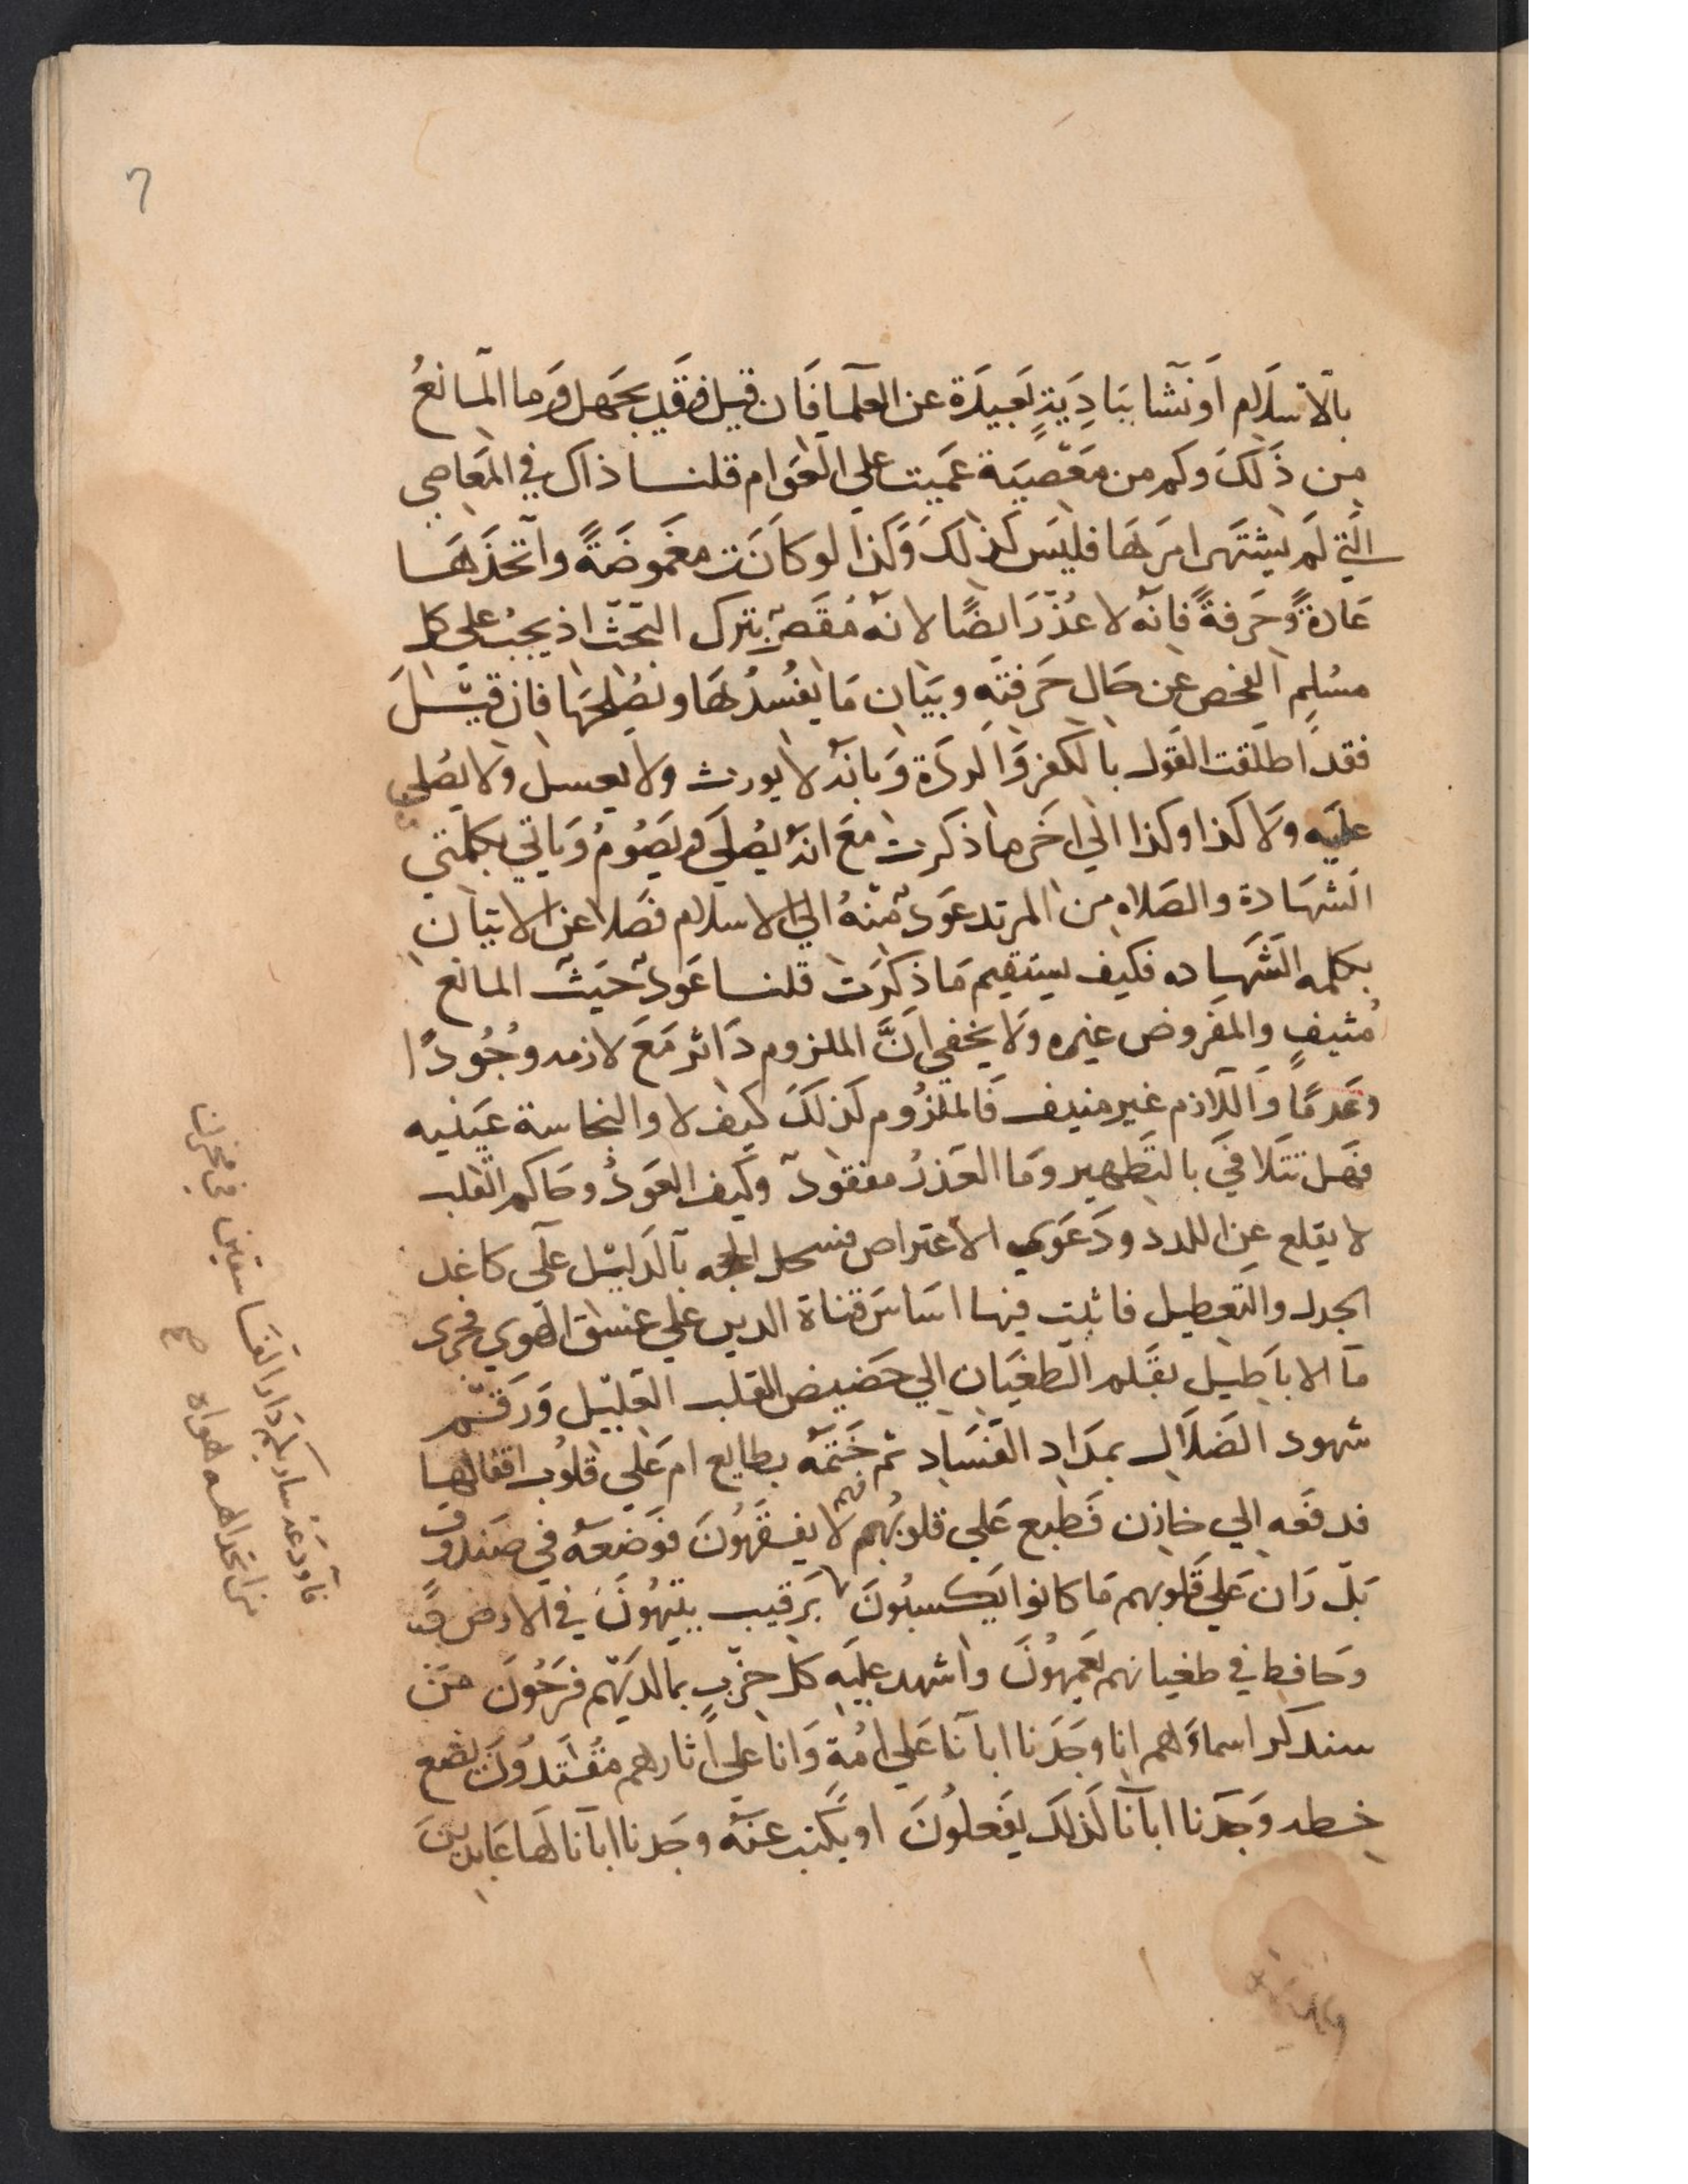 ٦
بالاسلام او نشا ببادية بعيدة عن العلما فان قيل فقد يجهل وما المانع
من ذلك وكم من معصية عميت على العوام قلنا ذاك في المعاصي
التي لم يشتهر امرها فليس كذلك وكذا لو كانت مغموضة واتخذها
عادة وحرفة فانه لا عذر ايضا لانه مقصر بترك البحث اذ يجب على كل
مسلم الفحص عن حال حرفته وبيان ما يفسدها ويصلحها فان قيل
فقد اطلقت القول بالكفر والردة وبانه لا يورث ولا يغسل ولا يصلى
عليه ولا كذا وكذا الي اخر ما ذكرت مع انه يصلي ويصوم وياتي بكلمتي
الشهادة والصلاه من المرتد عود منه الي الاسلام فضلا عن الاتيان
بكلمه الشهاده فكيف يستقيم ما ذكرت قلنا عود حيث المانع
منيف والمفروض غيره ولا يخفي ان الملزوم دائر مع لازمه وجودا
وعدما واللازم غير منيف فالملزوم كذلك كيف لا والنجاسة عينيه
فهل تتلافي بالتطهير وما العذر مفقود وكيف العود وحاكم القلب
لا يقلع عن اللدد ودعوي الاعتراض فسحل الحجه بالدليل على كاغد
الجدل والتعطيل فاثبت فيها اساس قناة الدين علي عنسق الهوي فجرى
ما الاباطيل بقلم الطغيان الي حضيض القلب القليل ورقم
شهود الضلال بمداد الفساد ثم ختمه بطابع ام علي قلوب اقفالها
فدفعه الي خازن فطبع علي قلوبهم فهم لا يفقهون فوضعه في صندوق
بل ران علي قلوبهم ما كانوا يكسبون برقيب يتيهون في الارض
وحافظ في طغيانهم يعمهون واشهد عليه كل حزب بمالديهم فرحون من
سنذكر اسماءهم انا وجدنا ابآنا علي امة وانا علي اثارهم مقتدون يضع
خطه وجدنا ابآنا كذلك يفعلون او يكتب عنه وجدنا ابآنا لها عابدين
فاودعه ساريكم دار الفاسقين في مخزن
من اتخذ الهه هواه صح